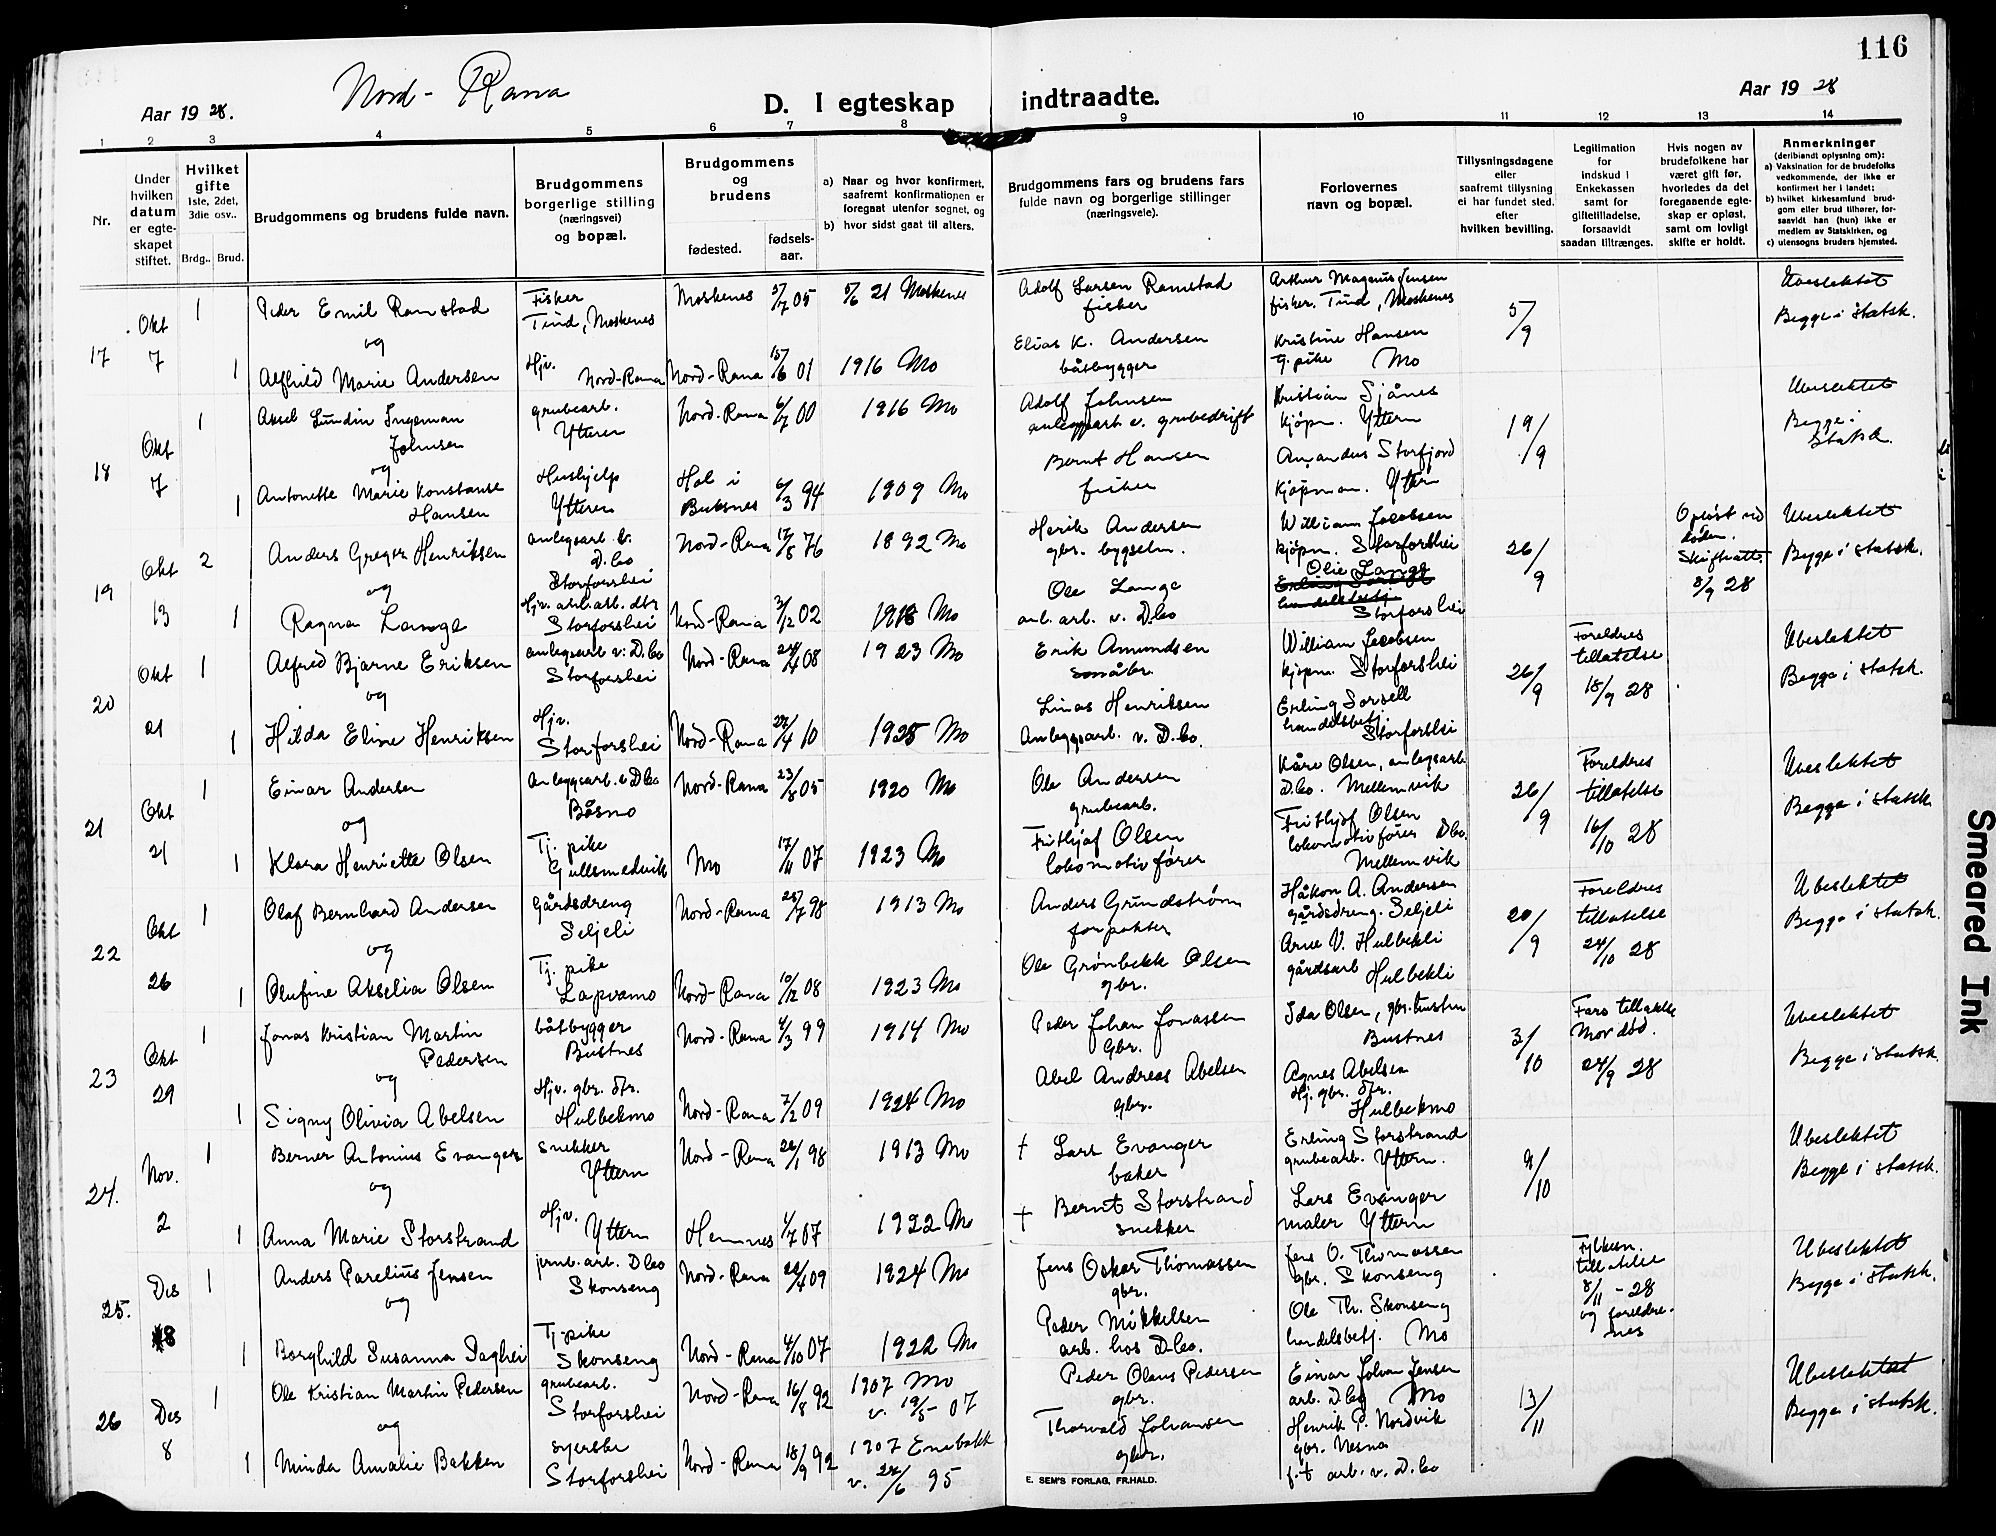 116
Nord-Rana
Aar 19 28.
D. I egteskap indtraadte.
Aar 19 28
1 2 3 4 5 6 7 8 9 10 11 12 13 14
Nr.
Under hvilken datum er egteskapet stiftet.
Hvilket gifte 1ste, 2det, 3die osv..
Brdg.. Brud.
Brudgommens og brudens fulde navn.
Brudgommens borgerlige stilling (næringsvei) og bopæl.
Brudgommens og brudens
fødested. fødselsaar.
a) Naar og hvor konfirmert, saafremt konfirmationen er foregaat utenfor sognet, og
b) hvor sidst gaat til alters.
Brudgommens fars og brudens fars fulde navn og borgerlige stillinger (næringsveie).
Forlovernes navn og bopæl.
Tillysningsdagene eller saafremt tillysning ei har fundet sted, efter hvilken bevilling.
Legitimation for indskud i Enkekassen samt for giftetilladelse, forsaavidt saadan tiltrænges.
Hvis nogen av brudefolkene har været gift før, hvorledes da det foregaaende egteskap er opløst, samt om lovligt skifte er holdt.
Anmerkninger (deriblandt oplysning om):
a) Vaksination for de brudefolks vedkommende, der ikke er konfirmert her i landet;
b) hvilket kirkesamfund brudgom eller brud tilhører, forsaavidt han (hun) ikke er medlem av Statskirken, og
c) utensogns bruders hjemsted.
17 Okt 7
1 Peder Emil Ramstad Fisker Tind, Moskenes Moskenes 5/7 05 5/6 21 Moskenes Adolf Larsen Ramstad fisker Arthur Magnus Jensen fisker. Tind, Moskenes 5/9 Ubeslektet
og Begge i statsk.
1 Alfhild Marie Andersen Hjv. Nord-Rana Nord-Rana 15/6 01 1916 Mo Elias K. Andersen båtbygger Kristine Hansen Tj. pike Mo
18 Okt 7
1 Aksel Lundin Ingeman Johnsen grubearb. Ytteren Nord-Rana 6/7 00 1916 Mo Adolf Johnsen anleggsarb. v. grubedrift Kristian Sjånes kjøpm. Yttern 19/9 Ubeslektet
og Begge i statsk.
1 Antonette Marie Konstanse Hansen Hushjelp Ytteren Hol i Buksnes 6/3 94 1909 Mo Bernt Hansen fisker Amandus Storfjord kjøpman. Yttern
19 Okt 13
2 Anders Greger Henriksen anlegsarb. v. D.co Storforshei Nord-Rana 17/8 76 1892 Mo Herik Andersen gbr. bygselm. William Jacobsen kjøpm. Storforshei 26/9 Opløst ved døden. Skifteatt. 8/9 28 Ubeslektet
og Begge i statsk.
1 Ragna Lange Hjv. arb. arb. dtr Storforshei Nord-Rana 3/12 02 1918 Mo Ole Lange anl. arb. v. D.co Olie Lange Storforshei
20 Okt 21
1 Alfred Bjarne Eriksen anlegsarb v. D.co Storforshei Nord-Rana 24/4 08 1923 Mo Erik Amundsen småbr. William Jacobsen kjøpm. Storforshei 26/9 Foreldres tillatelse 18/9 28 Ubeslektet
og Begge i statsk.
1 Hilda Eline Henriksen Hjv. Storforshei Nord-Rana 22/4 10 1925 Mo Linas Henriksen Anleggsarb. v. D.co. Erling Sorsell handelsbetj. Storforshei
21 Okt 21
1 Einar Andersen anleggsarb. v D.co Båsmo Nord-Rana 23/8 05 1920 Mo Ole Andersen grubearb. Kåre Olsen, anlegsarb D.co. Mellemvik 26/9 Foreldres tillatelse 16/10 28 Ubeslektet
og Begge i statsk.
1 Klara Henriette Olsen Tj. pike Gullsmedvik Mo 17/11 07 1923 Mo Frithjof Olsen lokomotivfører Frithjof Olsen lokomotivfører D.co. Mellemvik
22 Okt 26
1 Olaf Bernhard Andersen Gårdsdreng Seljeli Nord-Rana 28/7 98 1913 Mo Anders Grundstrøm forpakter Håkon A. Andersen gårdsdreng. Seljeli 20/9 Foreldres tillatelse 24/10 28 Ubeslektet
og Begge i statsk.
1 Olufine Akselia Olsen Tj. pike Lapvamo Nord-Rana 10/12 08 1923 Mo Ole Grønbekk Olsen gbr. Arne V. Hulbekli gårdsarb Hulbekli
23 Okt 29
1 Jonas Kristian Martin Pedersen båtbygger Bustnes Nord-Rana 4/3 99 1914 Mo Peder Johan Jonassen Gbr. Ida Olsen, gbr. hustru Bustnes 3/10 Fars tillatelse Mor død. 24/9 28 Ubeslektet
og Begge i statsk.
1 Signy Olivia Abelsen Hjv. gbr. dtr. Hulbekmo Nord-Rana 7/2 09 1924 Mo Abel Andreas Abelsen gbr. Agnes Abelsen Hj. gbr. dtr. Hulbekmo
24. Nov. 2
1 Berner Antonius Evanger snekker Yttern Nord-Rana 26/1 98 1913 Mo † Lars Evanger baker Erling Storstrand grubearb. Yttern. 9/10 Ubeslektet
og Begge i statsk.
1 Anna Marie Storstrand Hjv. Yttern Hemnes 4/7 07 1922 Mo † Bernt Storstrand snekker Lars Evanger maler Yttern
25. Des 8
1 Anders Parelius Jensen jernb. arb. D.co Skonseng Nord-Rana 22/4 09 1924 Mo Jens Oskar Thomassen gbr. Jens O. Thomassen gbr. Skonseng Fylkesm. tillatelse 8/11 - 28 og foreldrenes Ubeslektet
og Begge i statsk.
1 Borghild Susanna Daghei Tj. pike Skonseng Nord-Rana 4/10 07 1922 Mo Peder Mikkelsen arb. hos D.co. Ole Th. Skonseng handelsbetj. Mo
26 Des 8
1 Ole Kristian Martin Pedersen grubearb. Storforshei Nord-Rana 16/8 92 1907 Mo v. 19/5 07 Peder Olaus Pedersen gbr. Einar Johan Jensen arb. D.co Mo 13/11 Ubeslektet
og Begge i statsk.
1 Minda Amalie Bakken syerske Storforshei Nord-Rana 18/9 92 1907 Enebakk v. 22/6 95 Thorvald Johansen gbr. Henrik P. Nordvik gbr. Nesna f.t arb. v. D.co
E. SEM'S FORLAG, FR.HALD.
Smeared Ink